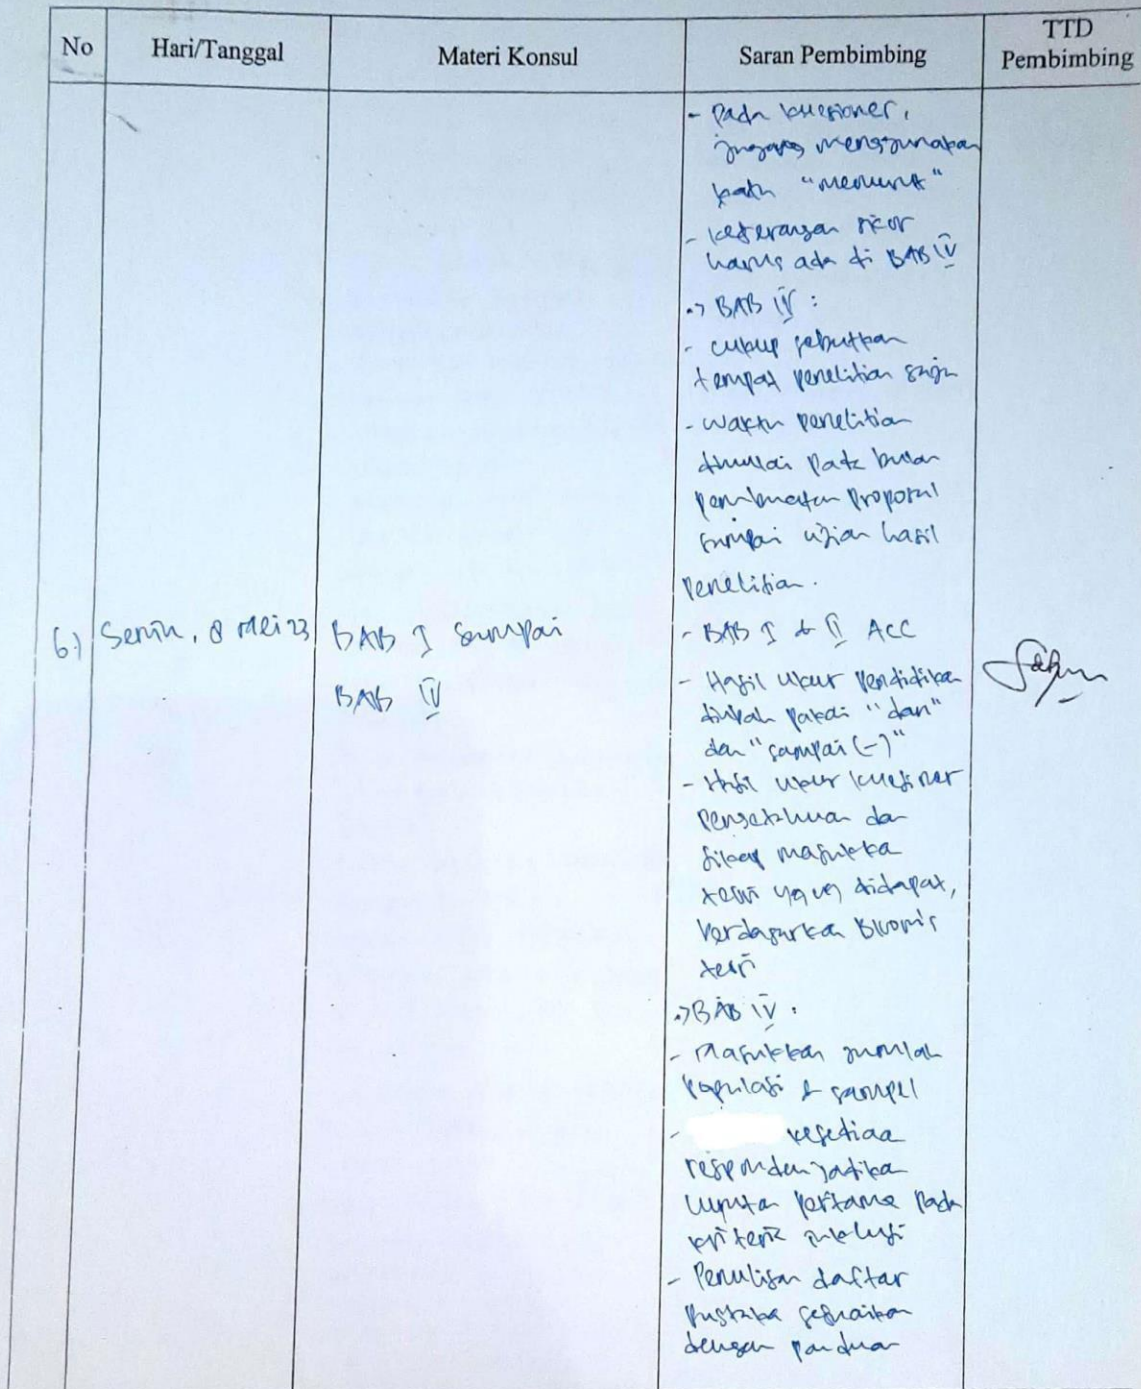 No
Hari/Tanggal
Materi Konsul
Saran Pembimbing
TTD
Pembimbing
- Pada kuesioner,
jangan menggunakan
kata "menurut"
- keterangan skor
harus ada di BAB IV
.> BAB IV :
- cukup sebutkan
tempat penelitian saja
- waktu penelitian
dimulai pada bulan
pembuatan proposal
sampai ujian hasil
penelitian.
6.) Senin, 8 Mei 23
BAB I sampai
BAB IV
- BAB I & II ACC
- Hasil ukur pendidikan
diubah pakai "dan"
dan "sampai (-)"
- Hasil ukur kuesioner
pengetahuan dan
sikap masukka
teori yang didapat,
berdasarkan Bloom's
teori
.> BAB IV :
- Masukkan jumlah
populasi & sampel
- kesediaa
responden jadika
urutan pertama pada
kriteria inklusi
- Penulisan daftar
pustaka sesuaikan
dengan panduan